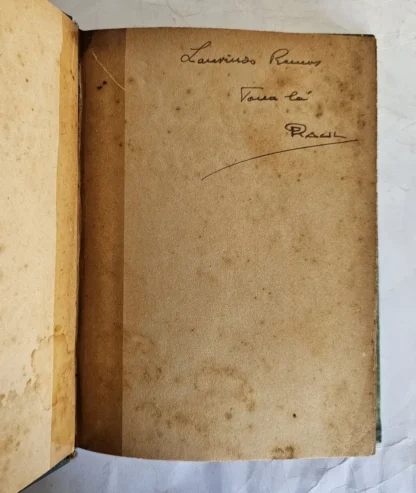 Laurindo Ramos
Toma lá
RAUL